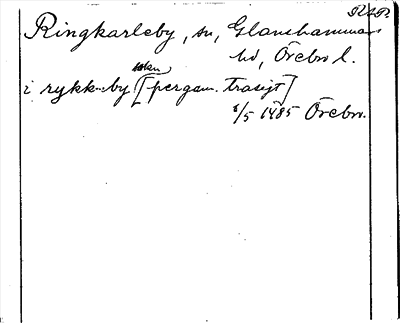 RAP.
Ringkarleby, sn, Glanshammars
hd, Örebro l.
i rykk--by [pergam. trasigt]
8/5 1485 Örebro.